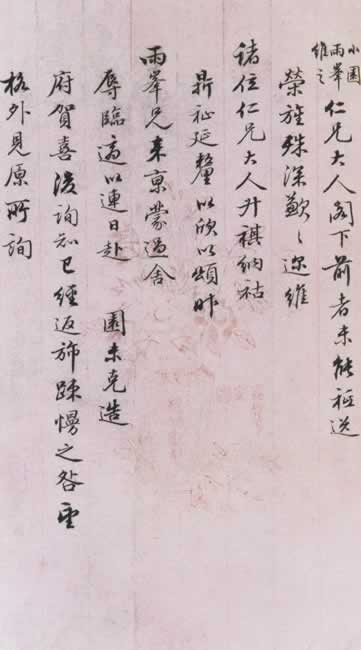 小圃
雨峯
维之 仁兄大人阁下前者未能祗送
荣旌殊深歉々迩維
诸位仁兄大人升祺纳祜
鼎祉延釐以欣以頌昨
雨峯兄来京蒙過舍
辱臨適以連日赴 園未克造
府賀喜後詢知已經返斾踈慢之咎重
格外見原所詢